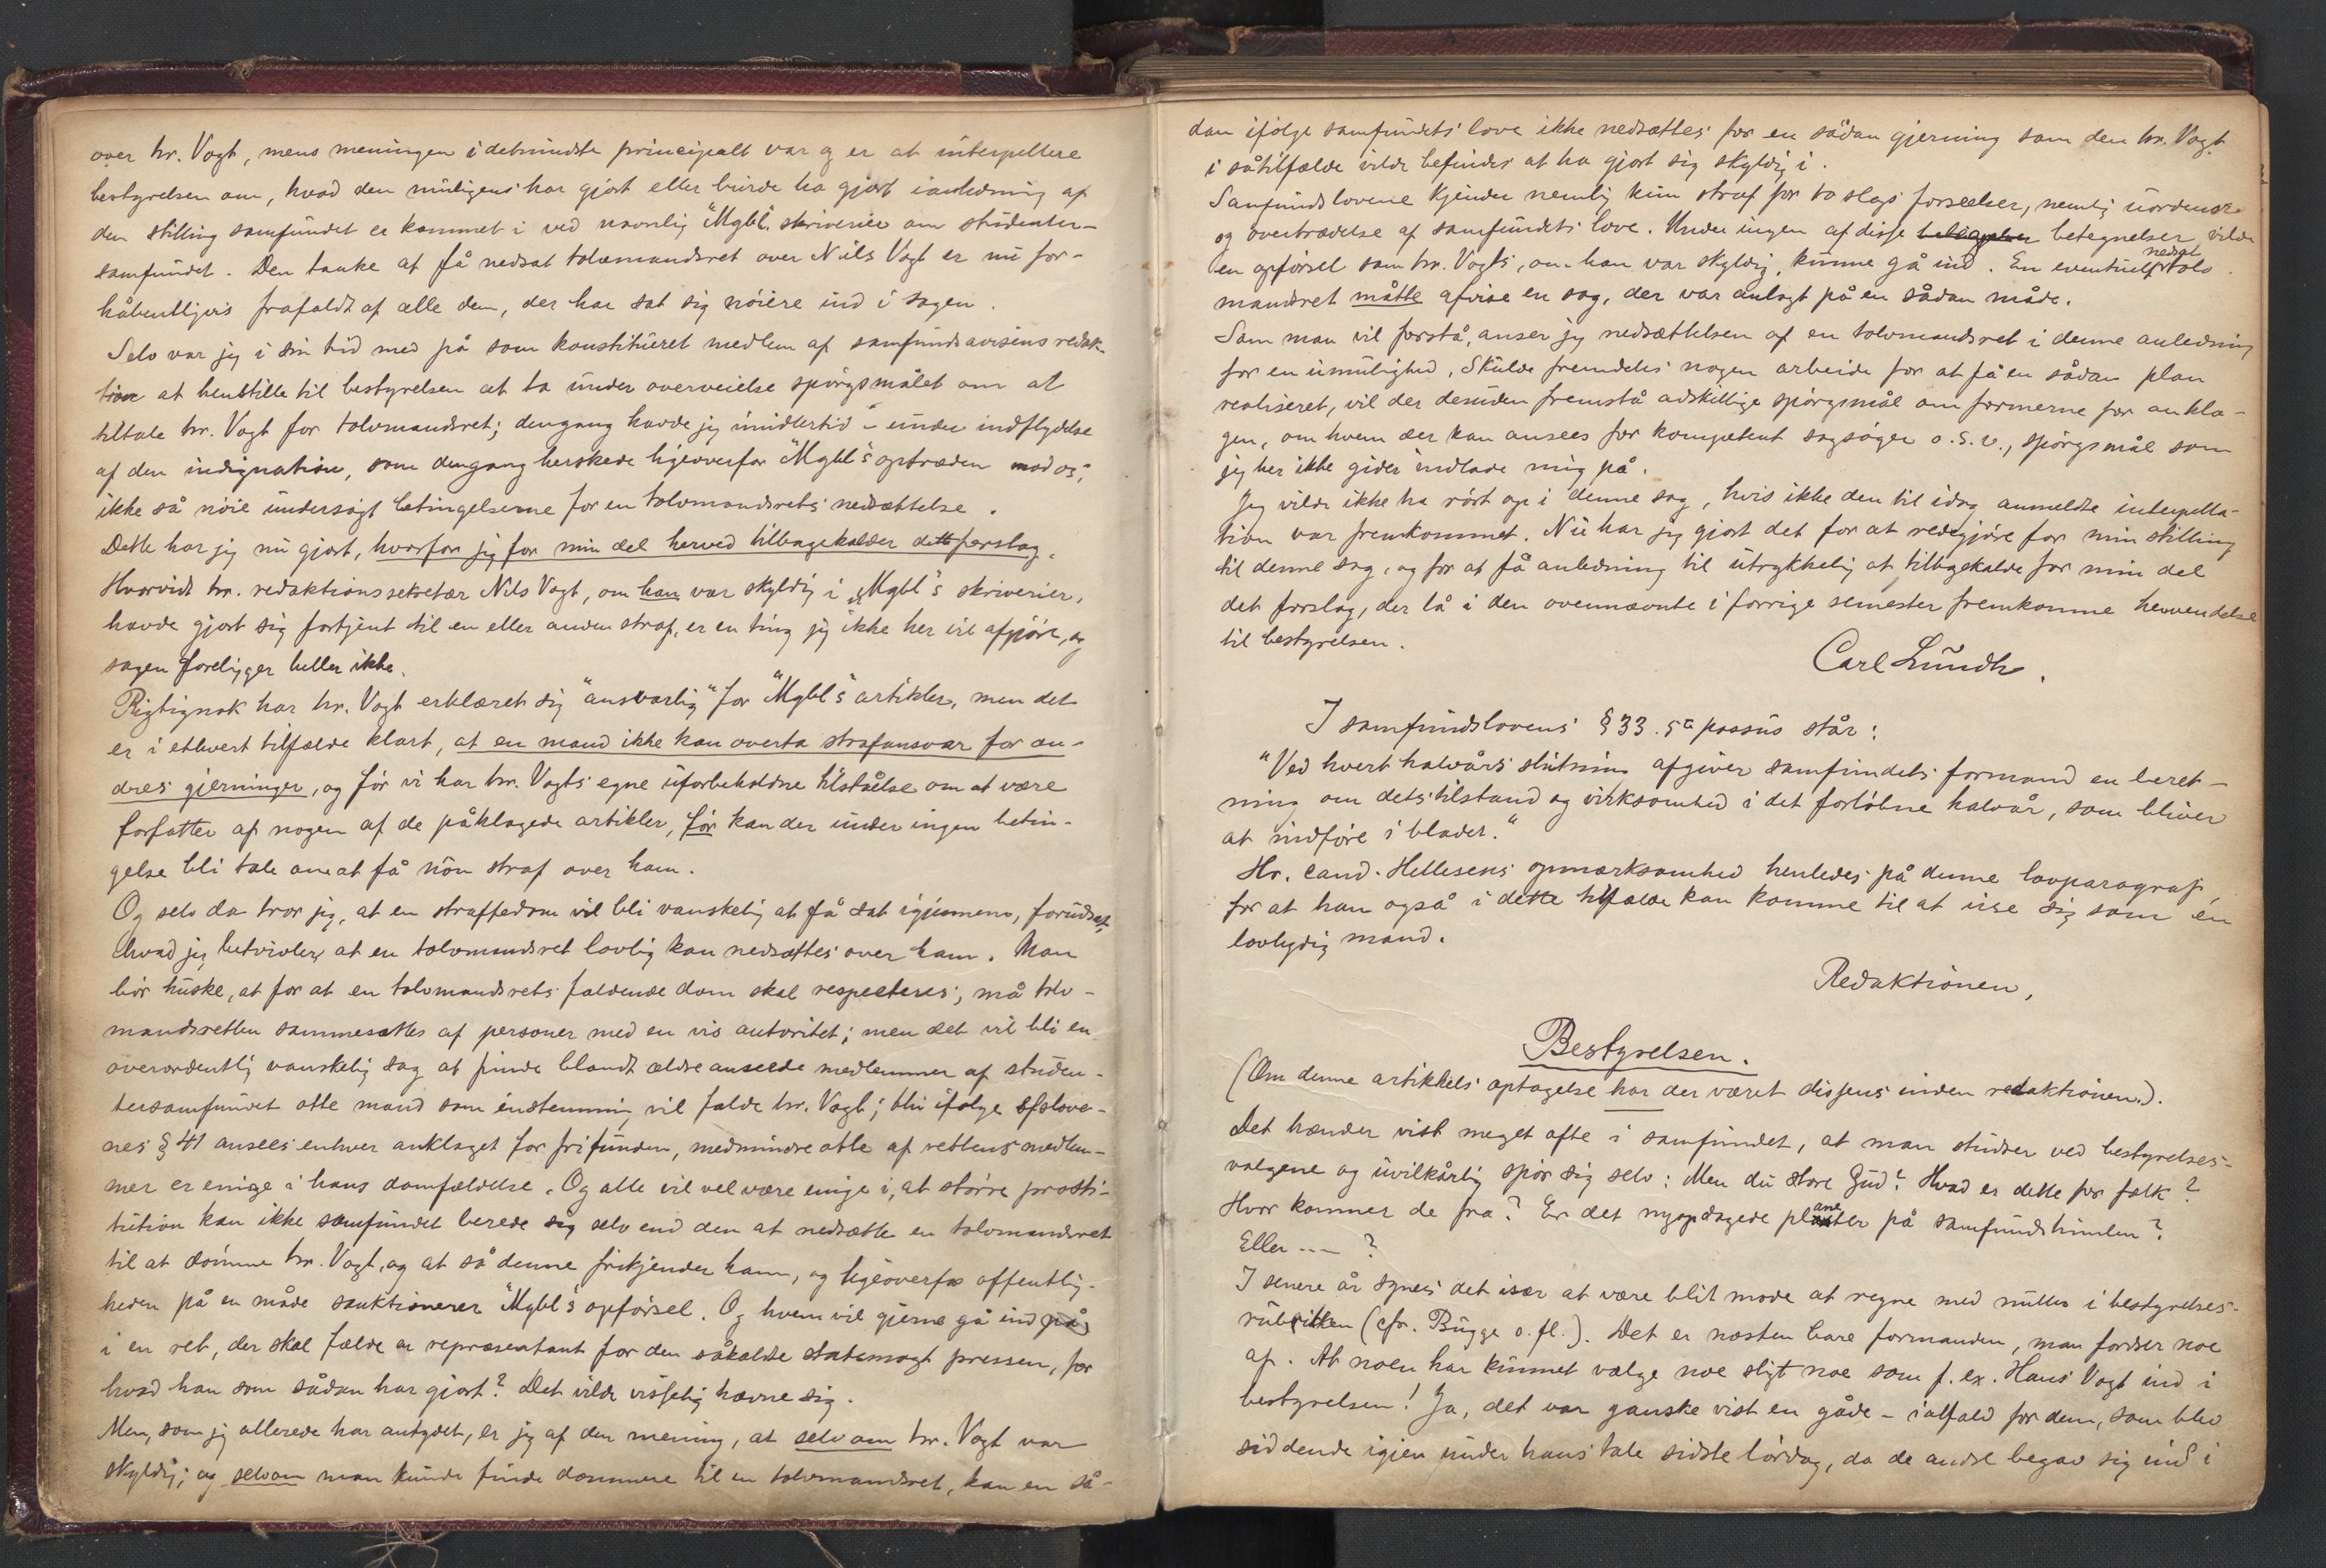 over hr. Vogt, mens meningen i detmindste principalt var og er at interpellere
bestyrelsen om, hvad den muligens har gjort eller burde ha gjort ianledning af
den stilling samfundet er kommet i ved navnlig "Mgbl."s skriverier om studenter-
samfundet. Den tanke at få nedsat tolvmandsret over Nils Vogt er nu for-
håbentligvis frafaldt af alle dem, der har sat sig nöiere ind i sagen.
Selv var jeg i sin tid med på som konstitueret medlem af samfundsavisens redak-
tion at henstille til bestyrelsen at ta under overveielse spörgsmålet om at
tiltale hr. Vogt for tolvmandsret; dengang havde jeg imidlertid – under indflydelse
af den indignation, som dengang herskede ligeoverfor "Mgbl"s optræden mod os,
ikke så nöie undersögt betingelserne for en tolvmandsrets nedsættelse.
Dette har jeg nu gjort, hvorfor jeg for min del herved tilbagekalder dette forslag.
Hvorvidt hr. redaktionssekretær Nils Vogt, om han var skyldig i "Mgbl"s skriverier,
havde gjort sig fortjent til en eller anden straf, er en ting jeg ikke her vil afgjöre, og
sagen foreligger heller ikke.
Rigtignok har hr. Vogt erklæret sig "ansvarlig" for "Mgbl"s artikler, men det
er i ethvert tilfælde klart, at en mand ikke kan overta strafansvar for an-
dres gjerninger, og för vi har hr. Vogts egne uforbeholdne tilståelse om at være
forfatter af nogen af de påklagede artikler, för kan der under ingen betin-
gelse bli tale om at få nön straf over ham.
Og selv da tror jeg, at en straffedom vil bli vanskelig at få sat igjennem, forudsat,
hvad jeg betvivler, at en tolvmandsret lovlig kan nedsættes over ham. Man
bör huske, at for at en tolvmandsrets fældende dom skal respecteres, må tolv-
mandsretten sammesættes af personer med en vis autoritet; men det vil bli en
overordentlig vanskelig sag at finde blandt ældre ansede medlemmer af studen-
tersamfundet otte mand som enstemmig vil fælde hr. Vogt; thi ifölge sfslove-
nes § 41 ansees enhver anklaget for frifunden, medmindre otte af rettens medlem-
mer er enige i hans domfældelse. Og alle vil vel være enige i, at större prosti-
tution kan ikke samfundet berede sig selv end den at nedsætte en tolvmandsret
til at dömme hr. Vogt, og at så denne frikjender ham, og ligeoverfor offentlig-
heden på en måde sanktionerer "Mgbl"s opförsel. Og hvem vil gjerne gå ind på
i en ret, der skal fælde en repræsentant for den såkaldte statsmagt pressen, for
hvad han som sådan har gjort? Det vilde visselig hævne sig.
Men, som jeg allerede har antydet, er jeg af den mening, at selv om hr. Vogt var
skyldig, og selvom man kunde finde dommere til en tolvmandsret, kan en så-
dan ifölge samfundets love ikke nedsættes for en sådan gjerning som den hr. Vogt
i såtilfælde vilde befindes at ha gjort sig skyldig i.
Samfundslovene kjender nemlig kun straf for to slags forseelser, nemlig uordener
og overtrædelse af samfundets love. Under ingen af disse betegnelser vilde
en opförsel som hr. Vogts, om han var skyldig, kunne gå ind. En eventuelt nedsat tolv-
mandsret måtte afvise en sag, der var anlagt på en sådan måde.
Som man vil forstå, anser jeg nedsættelsen af en tolvmandsret i denne anledning
for en umulighed. Skulde fremdeles nogen arbeide for at få en sådan plan
realiseret, vil der desuden fremstå adskillige spörgsmål om formerne for ankla-
gen, om hvem der kan ansees for kompetent sagsöger o.s.v., spörgsmål som
jeg her ikke gider indlade mig på.
Jeg vilde ikke ha rört op i denne sag, hvis ikke den til idag anmeldte interpella-
tion var fremkommet. Nu har jeg gjort det for at redegjöre for min stilling
til denne sag, og for at få anledning til utrykkelig at tilbagekalde for min del
det forslag, der lå i den ovennævnte i forrige semester fremkomne henvendelse
til bestyrelsen.
Carl Lundh.
I samfundslovens § 33. 5te passus står:
"Ved hvert halvårs slutning afgiver samfundets formand en beret-
ning om dets tilstand og virksomhed i det forlöbne halvår, som bliver
at indföre i bladet."
Hr. cand. Hellesens opmærksomhed henledes på denne lovparagraf,
for at han også i dette tilfælde kan komme til at vise sig som en
lovlydig mand.
Redaktionen.
Bestyrelsen.
(Om denne artikkels optagelse har der været dissens inden redaktionen.).
Det hænder vist meget ofte i samfundet, at man studser ved bestyrelses-
valgene og uvilkårlig spör sig selv: Men du store Gud! Hvad er dette for folk?
Hvor kommer de fra? Er det nyopdagede planeter på samfundshimlen?
Eller --- ?
I senere år synes det især at være blit mode at regne med nuller i bestyrelses-
rubrikken (cfr. Bugge o. fl.). Det er næsten bare formanden, man fordrer noe
af. At noen har kunnet vælge noe sligt noe som f. ex. Hans Vogt ind i
bestyrelsen! Ja, det var ganske vist en gåde – ialfald for dem, som blev
siddende igjen under hans tale sidste lördag, da de andre begav sig ind i